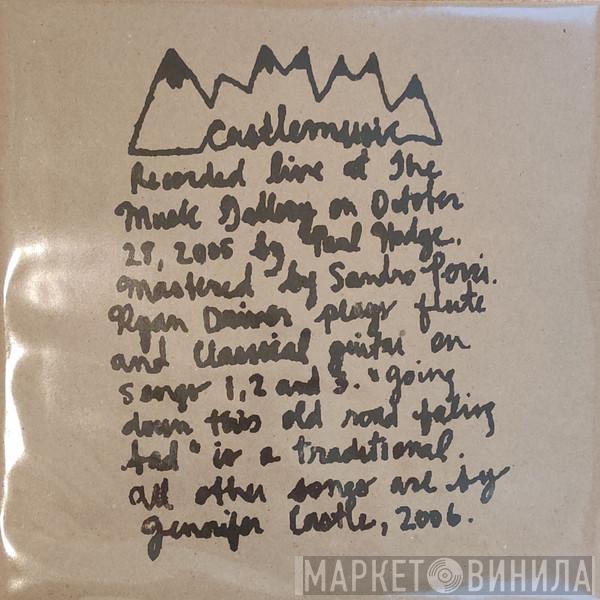 Castlemusic
Recorded live at The
Music Gallery on October
28, 2005 by Paul Hodge.
Mastered by Sandro Perri.
Ryan Driver plays flute
and Classical guitar on
songs 1, 2 and 3. "Going
down this old road feeling
bad" is a traditional.
All other songs are by
Jennifer Castle, 2006.
МАРКЕТ ВИНИЛА